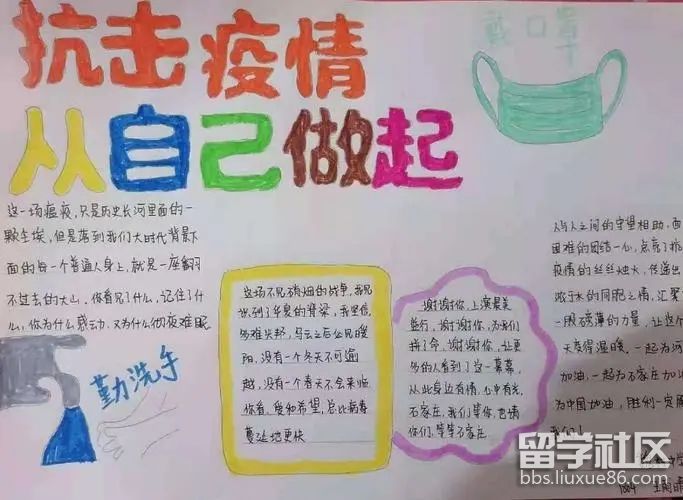 抗击疫情
从自己做起
戴口罩
这一场瘟疫，只是历史长河里面的一
颗尘埃，但是落到我们大时代背景下
面的每一个普通人身上，就是一座翻
不过去的大山，你看见了什么，记住了什
么，你为什么感动，又为什么彻夜难眠
勤洗手
这场不见硝烟的战争，我见
识到了华夏的脊梁，我坚信
多难兴邦，乌云之后必见暖
阳，没有一个冬天不可逾
越，没有一个春天不会来临
你看，爱和希望，总比病毒
蔓延地更快
谢谢你，上演最美
逆行，谢谢你，为我们
拼了命，谢谢你，让更
多的人看到了这一幕幕
从此身边有情，心中有光，
石家庄，我们等你，
你们，等等石家庄
人与人之间的守望相助，面
困难的团结一心，点亮了抗
疫情的丝丝烛火，传递出
浓于水的同胞之情，汇聚
一股磅礴的力量，让这个
天变得温暖，一起为河
加油，一起为石家庄加油
为中国加油，胜利一定属
我们！
中学
留学社区
bbs.liuxue86.com